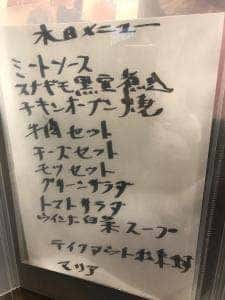 本日メニュー
ミートソース
スナギモ黒煮込
チキンオーブン焼
牛肉セット
チーズセット
モツセット
グリーンサラダ
トマトサラダ
ウインナ白菜スープ
テイクアウント
マリア